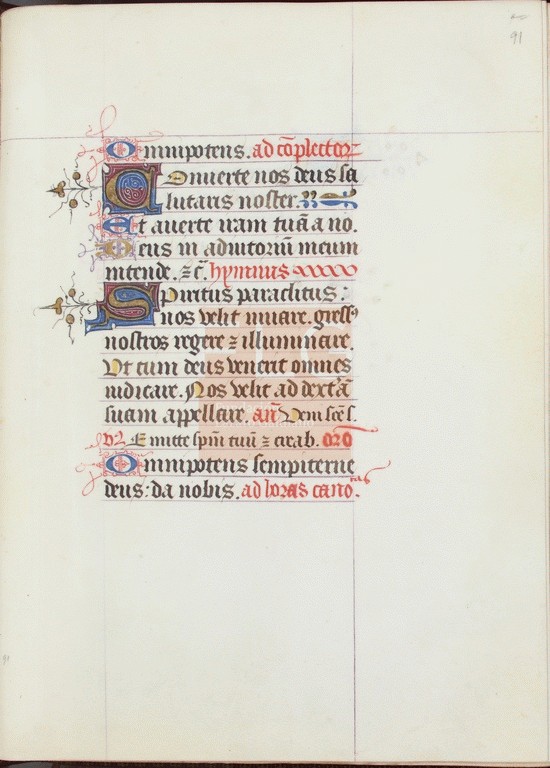 91
Omnipotens. ad cõplector
Conuerte nos deus sa
lutaris noster.
Et auerte iram tuã a no.
Deus in adiutoriũ meum
intende. ⁊ c̃. hymnus
Spiritus paraclitus:
nos velit iuuare. gressꝰ
nostros regere ⁊ illuminare.
Vt cum deus venerit omnes
iudicare. Nos velit ad dext'ã
suam appellare. añ Veni scẽ s.
Emitte spm̃ tuũ ⁊ crab. oro
Omnipotens sempiterne
deus: da nobis. ad horas cano.